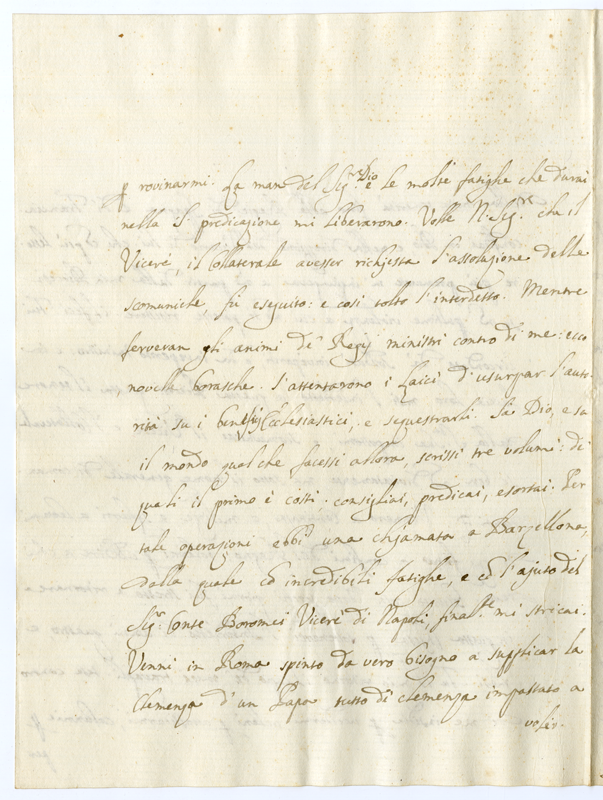 p rovinarmi. La man del Sig.r Dio e le molte fatighe che durai
nella S. predicazione mi liberarono. Volle N. Sig.re che il
Viceré, il Collaterale avesser richiesta l'assoluzione delle
scomuniche, fù eseguito: e così tolto l'interdetto. Mentre
ferveran gli animi de' Regij ministri contro di me: ecco
novelle borasche. S'attentarono i Laici d'usurpar l'auto-
rità su i benefizj Ecclesiastici, e sequestrarli. Sà Dio, e sa
il mondo quel che facessi allora, scrissi tre volumi: di
quali il primo è costì. consigliai, predicai, esortai. Per
tale operazioni ebbi una chiamata a Barzellona,
dalla quale cō incredibili fatighe, e cō l'ajuto del
Sig.r Conte Boromei Viceré di Napoli, final.te mi stricai.
Venni in Roma spinto da vero bisogno a supplicar la
Clemenza d'un Papa tutto di clemenza impastato a